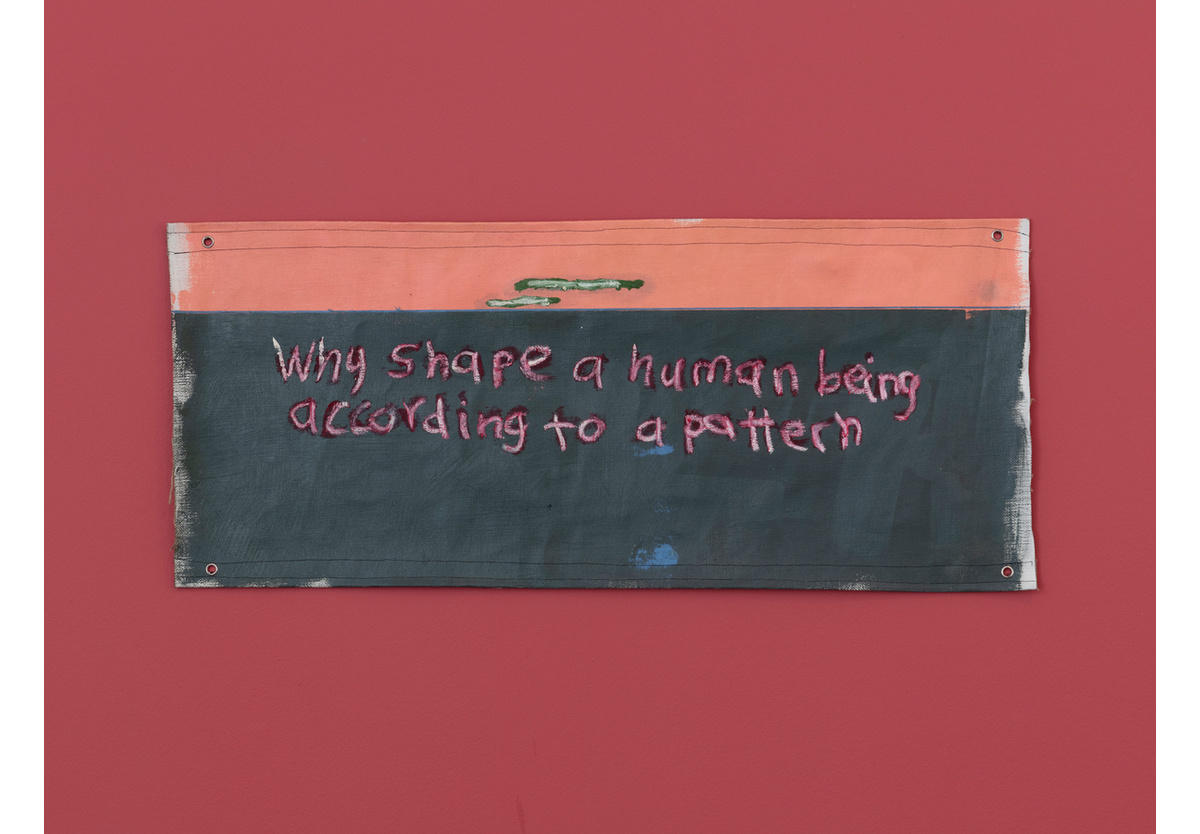 Why shape a human being
according to a pattern